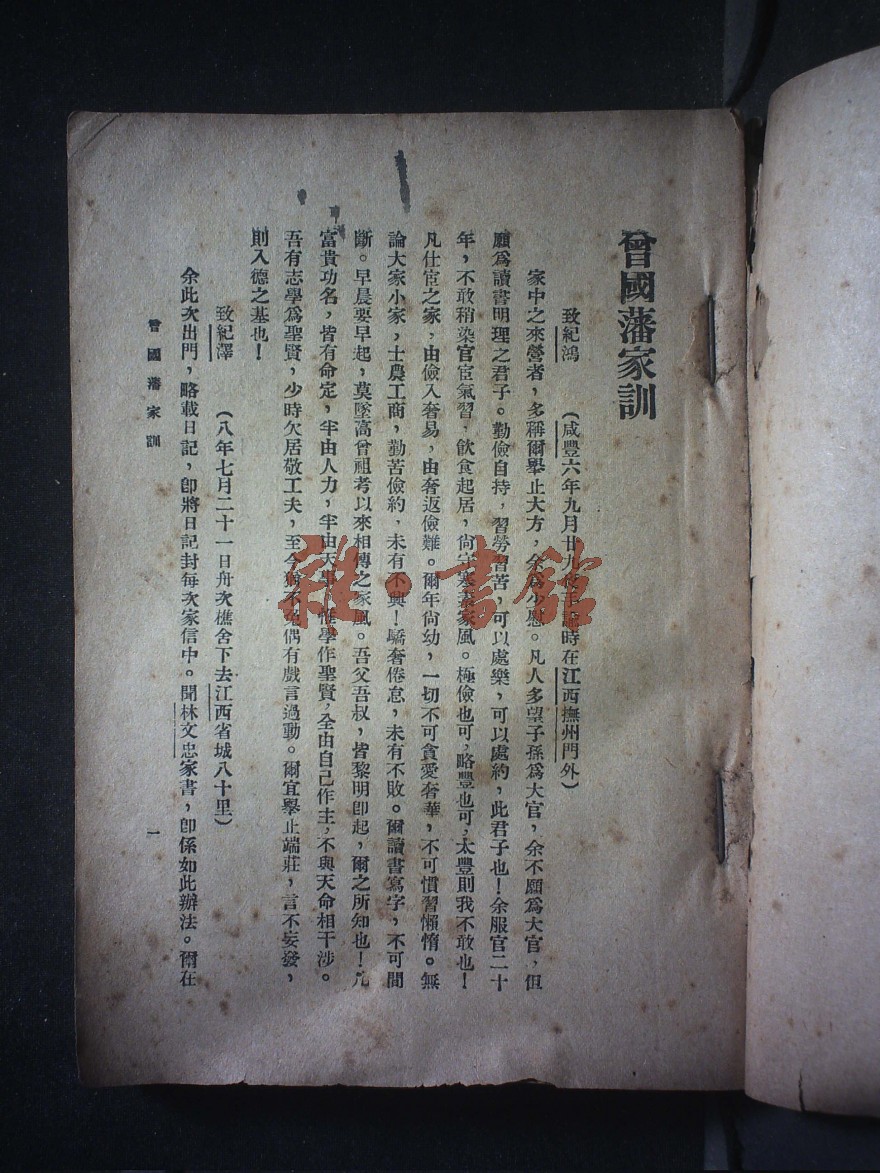 曾國藩家訓
致紀鴻　（咸豐六年九月廿九夜手諭時在江西撫州門外）
家中之來營者，多稱爾舉止大方，余爲少慰。凡人多望子孫爲大官，余不願爲大官，但
願爲讀書明理之君子。勤儉自持，習勞習苦，可以處樂，可以處約，此君子也！余服官二十
年，不敢稍染官宦氣習，飲食起居，尙守寒素家風。極儉也可，略豐也可，太豐則我不敢也！
凡仕宦之家，由儉入奢易，由奢返儉難。爾年尙幼，一切不可貪愛奢華，不可慣習懶惰。無
論大家小家，士農工商，勤苦儉約，未有不興！驕奢倦怠，未有不敗。爾讀書寫字，不可間
斷。早晨要早起，莫墜高曾祖考以來相傳之家風。吾父吾叔，皆黎明卽起，爾之所知也！凡
富貴功名，皆有命定，半由人力，半由天事，惟學作聖賢，全由自己作主，不與天命相干涉。
吾有志學爲聖賢，少時欠居敬工夫，至今猶不免偶有戲言過動。爾宜舉止端莊，言不妄發，
則入德之基也！
致紀澤　（八年七月二十一日舟次樵舍下去江西省城八十里）
余此次出門，略載日記，卽將日記封每次家信中。聞林文忠家書，卽係如此辦法。爾在
曾國藩家訓
一
雜·書館